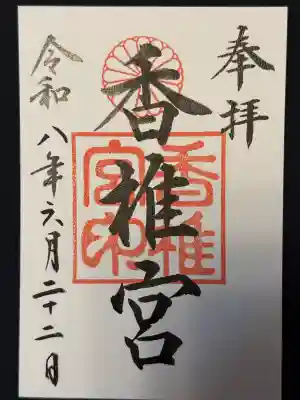 奉拝
香椎宮
香椎宮印
令和八年六月二十二日